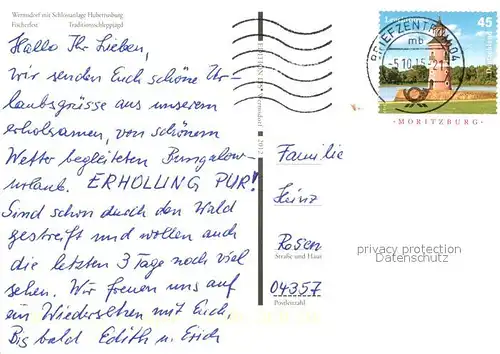 Wermsdorf mit Schlossanlage Hubertusburg
Fischerfest Traditionsschleppjagd
Hallo Ihr Lieben,
wir senden Euch schöne Ur-
laubsgrüsse aus unserem
erholsamen, von schönem
Wetter begleiteten Bungalow-
urlaub. ERHOLUNG PUR!
Sind schon durch den Wald
gestreift und wollen auch
die letzten 3 Tage noch viel
sehen. Wir freuen uns auf
ein Wiedersehen mit Euch.
Bis bald Edith u. Erich
2012
BRIEFZENTRUM 04
mb
-5.10.15-21
45
MORITZBURG
Familie
Heinz
Rosen
Straße und Haus
privacy protection
Datenschutz
04357
Postleitzahl